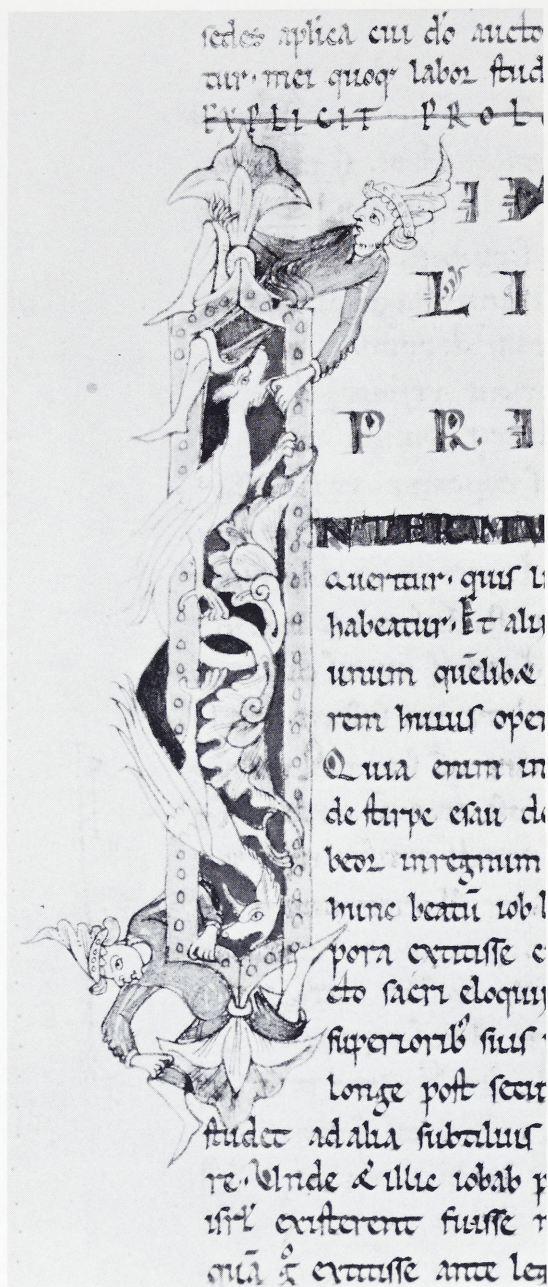 sedes aplica cui dō aucto
tur· mei quoq; labor stud
EXPLICIT PROL
LI
PRI
NTER MU
QUERITUR· quis li
habeatur· Et aliı
unum quēlibꝫ
rem huius oper
Quia enim in
de stirpe esau de
beor inregnum
hunc beatū iob l
pora extitisse e
cto sacri eloquii
superiorib; suis
longe post secut
studet ad alia subtilius
re· Unde & illic iobab p
isrł existerent fuisse
quā gͦ extitisse ante leg